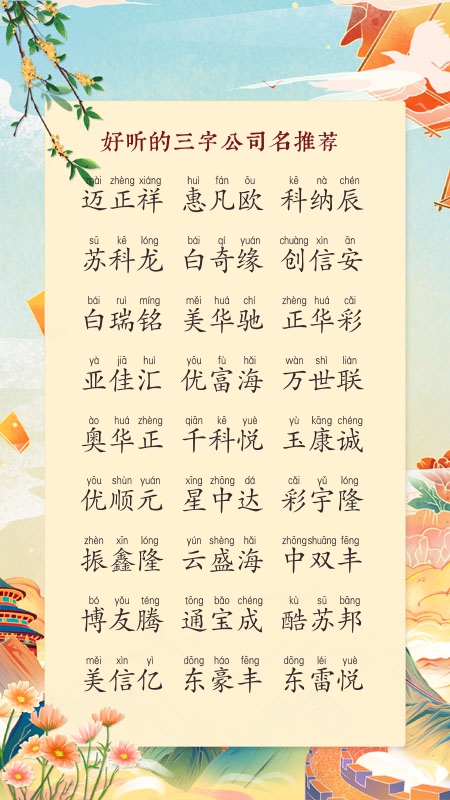 好听的三字公司名推荐
mài zhèng xiáng huì fán ōu kē nà chén
迈正祥 惠凡欧 科纳辰
sū kē lóng bái qí yuán chuàng xìn ān
苏科龙 白奇缘 创信安
bái ruì míng měi huá chí zhèng huá cǎi
白瑞铭 美华驰 正华彩
yà jiā huì yōu fù hǎi wàn shì lián
亚佳汇 优富海 万世联
ào huá zhèng qiān kē yuè yù kāng chéng
奥华正 千科悦 玉康诚
yōu shùn yuán xīng zhōng dá cǎi yǔ lóng
优顺元 星中达 彩宇隆
zhèn xīn lóng yún shèng hǎi zhōng shuāng fēng
振鑫隆 云盛海 中双丰
bó yǒu téng tōng bǎo chéng kù sū bāng
博友腾 通宝成 酷苏邦
měi xìn yì dōng háo fēng dōng léi yuè
美信亿 东豪丰 东雷悦